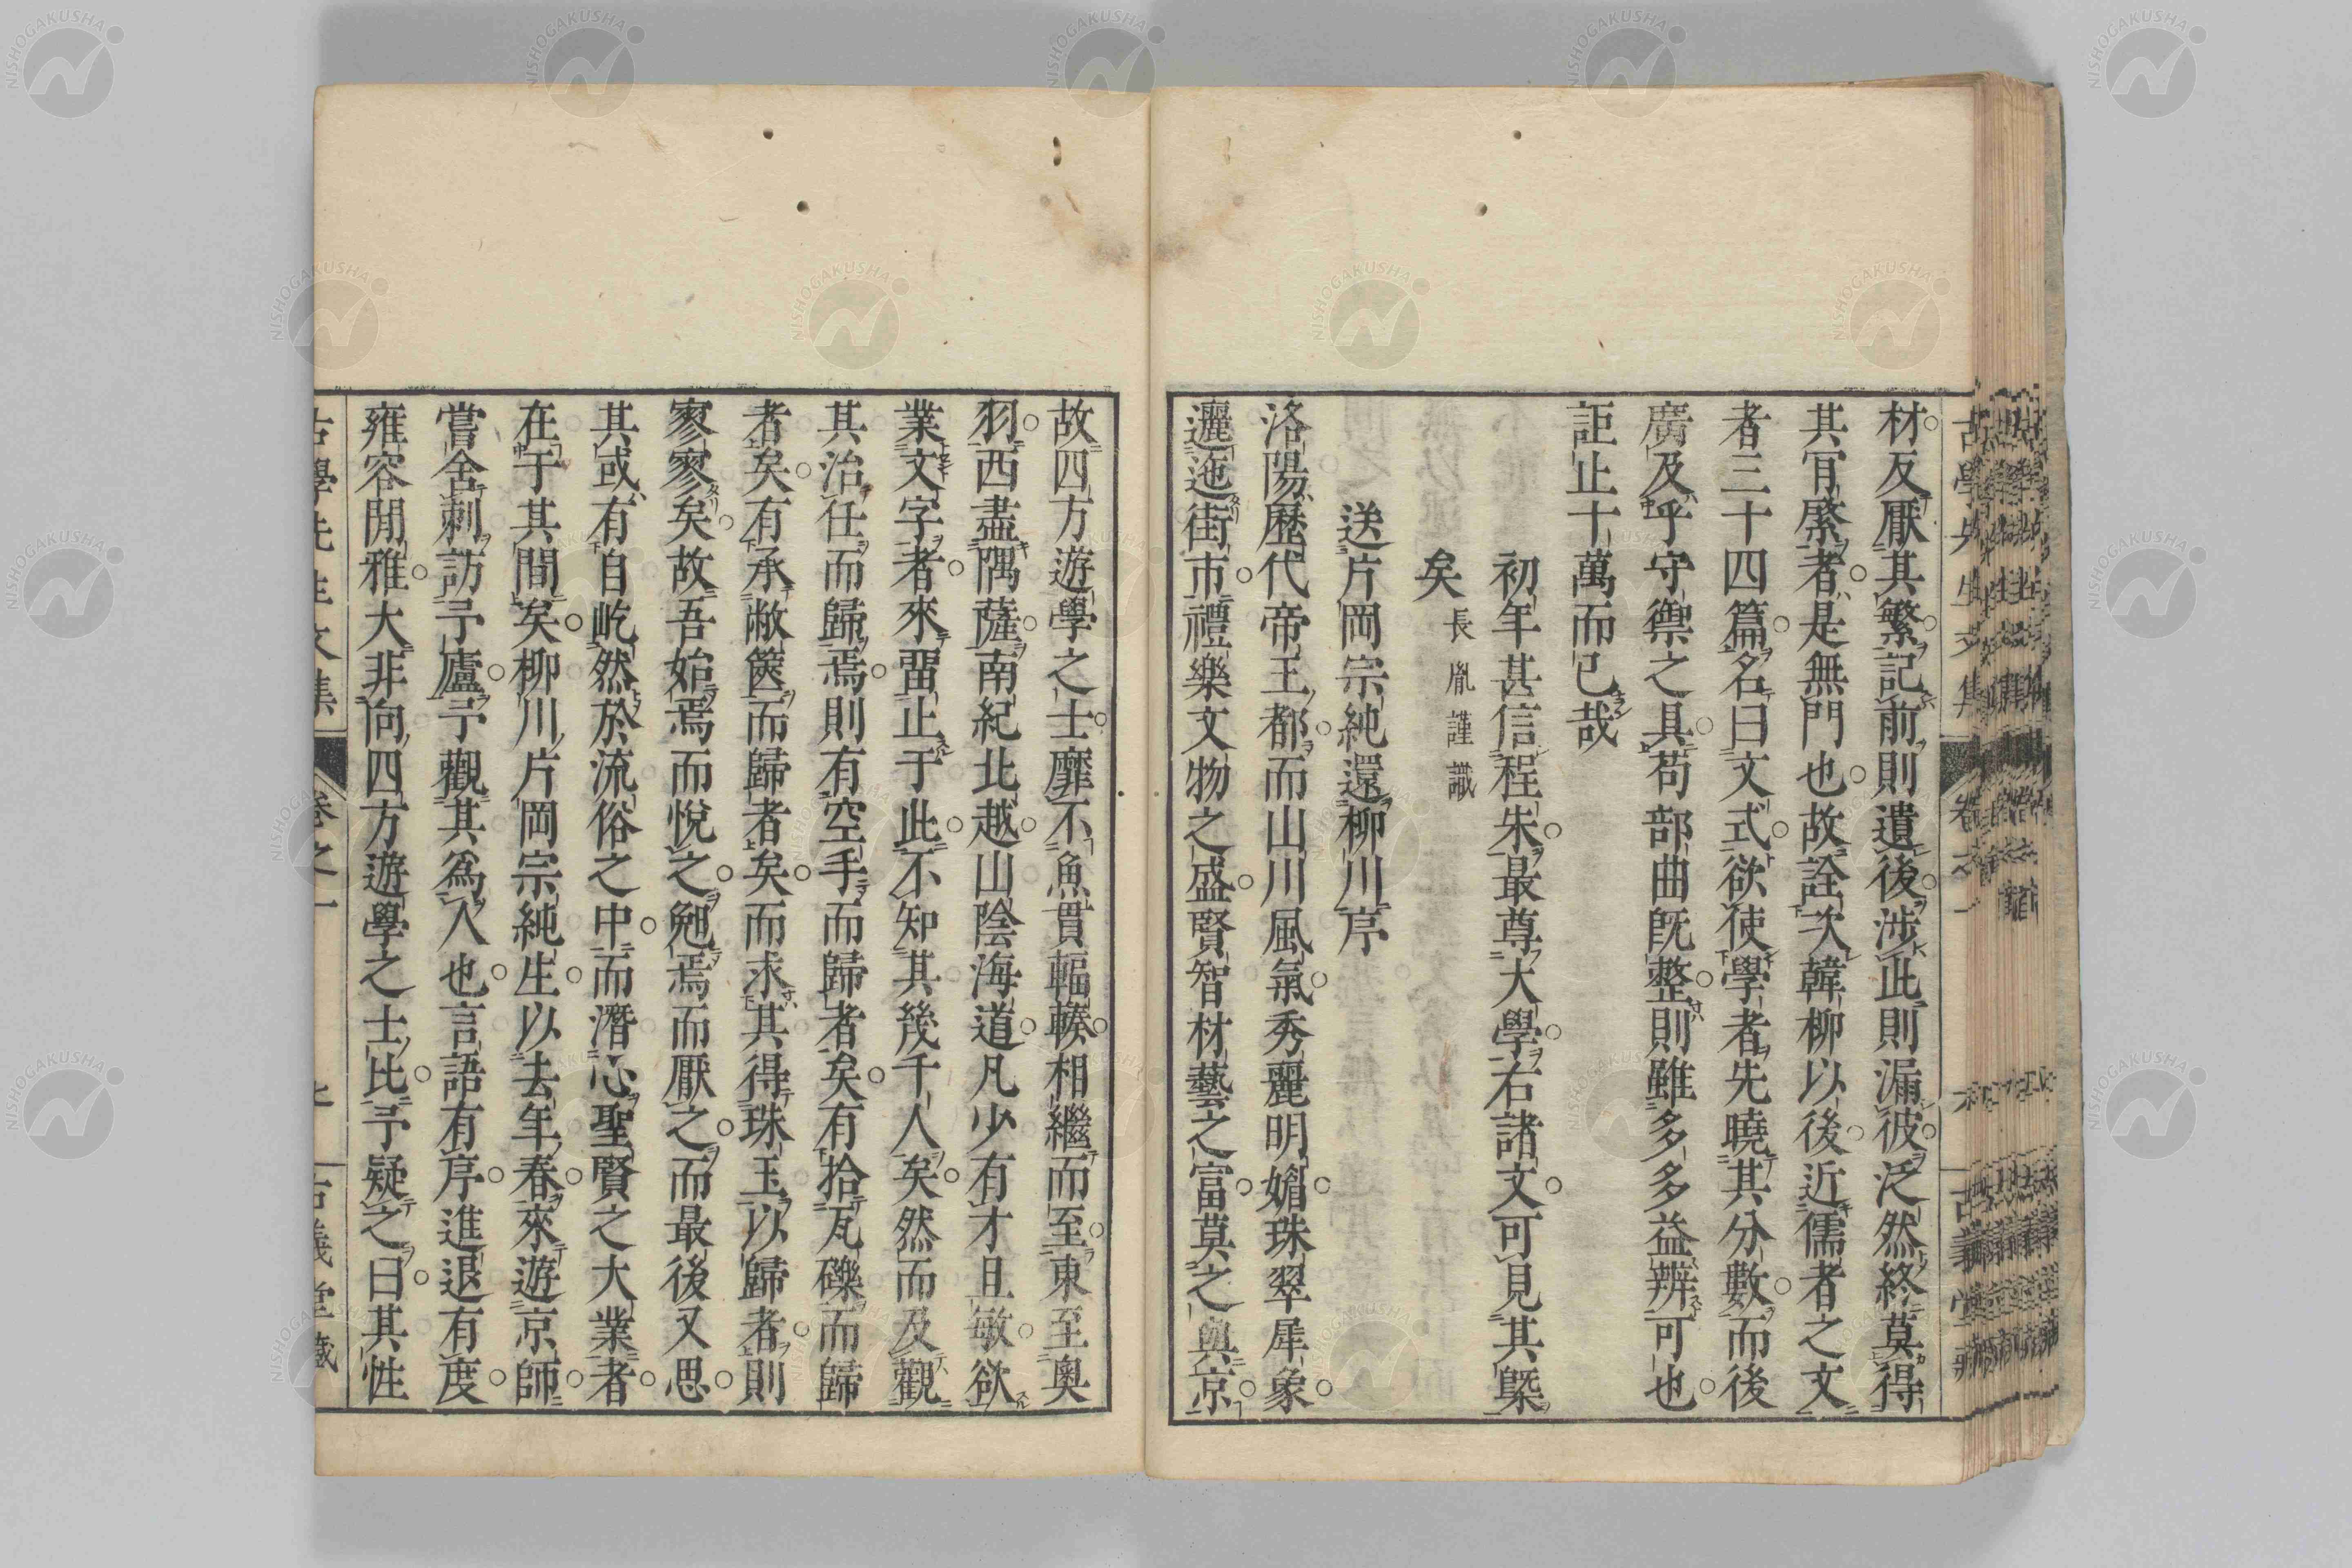 材反厭其繁記前則遺後涉此則漏彼泛然終莫得
其肎綮者是無門也故詮次韓柳以後近儒者之文
者三十四篇名曰文式欲使學者先曉其分數而後
廣及乎守禦之具苟部曲既整則雖多多益辨可也
詎止十萬而已哉
初年甚信程朱最尊大學右諸文可見其槩
矣 長胤謹識
送片岡宗純還柳川序
洛陽歷代帝王都而山川風氣秀麗明媚珠翠犀象
邐迤街市禮樂文物之盛賢智材藝之富莫之與京
故四方遊學之士靡不魚貫輻輳相繼而至東至奧
羽西盡隅薩南紀北越山陰海道凡少有才且敏欲
業文字者來畱止于此不知其幾千人矣然而及觀
其治任而歸焉則有空手而歸者矣有拾瓦礫而歸
者矣有承敝篋而歸者矣而求其得珠玉以歸者則
寥寥矣故吾始焉而悅之勉焉而厭之而最後又思
其或有自屹然於流俗之中而潛心聖賢之大業者
在于其間矣柳川片岡宗純生以去年春來遊京師
嘗舍剌訪予廬予觀其爲人也言語有序進退有度
雍容閒雅大非向四方遊學之士比予疑之曰其性
古學先生文集 卷之一 古義堂藏
NISHOGAKUSHA